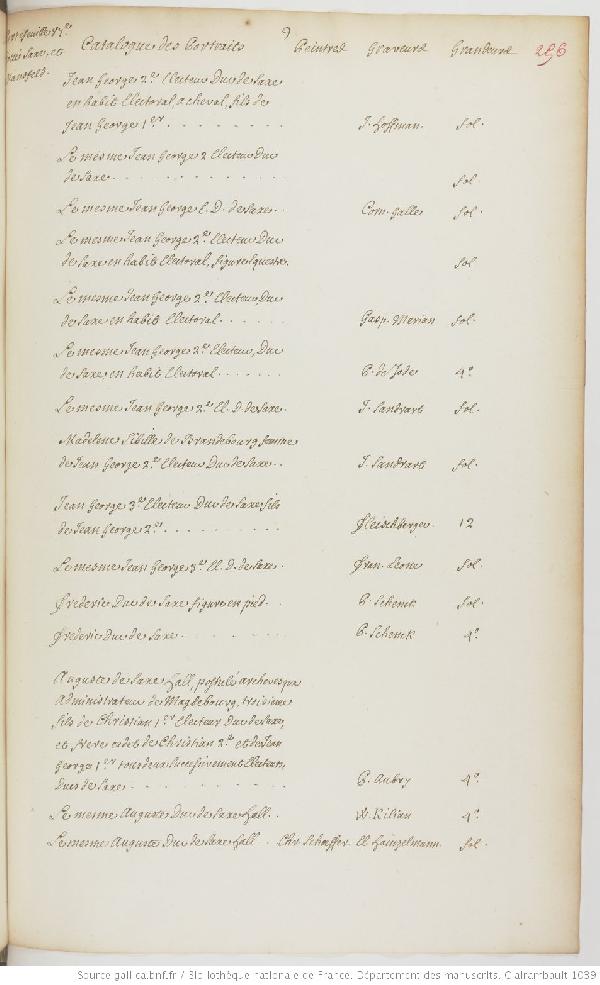 9
Catalogue des Portraits Peintres Graveurs Grandeurs 296
Jean George 2.e Electeur Duc de Saxe
en habit Electoral a cheval, fils de
Jean George 1.er . . . . . . . . J. Hoffman. fol.
Le mesme Jean George 2 Electeur Duc
de Saxe . . . . . . . . . . fol.
Le mesme Jean George E. D. de Saxe. . Corn. Galle fol.
Le mesme Jean George 2.e Electeur Duc
de Saxe en habit Electoral, figure Equestre. fol
Le mesme Jean George 2.e Electeur, Duc
de Saxe en habit Electoral . . . . . . Gasp. Merian fol.
Le mesme Jean George 2.e Electeur, Duc
de Saxe, en habit Electoral . . . . . . P. de Jode 4.o
Le mesme Jean George 2.e El. D. de Saxe. J. Sandrart fol.
Madelene Sibille de Brandebourg femme
de Jean George 2.e Electeur Duc de Saxe. . J. Sandrart fol.
Jean George 3.e Electeur Duc de Saxe fils
de Jean George 2.e . . . . . . . . . Fleischberger. 12
Le mesme Jean George 3.e El. D. de Saxe. Fran. Leone fol.
Frederic Duc de Saxe figure en pied. . P. Schenck fol.
Frederic Duc de Saxe. . . . . . . . P. Schenck 4.o
Auguste de Saxe Hall, postulé archevesque
Administrateur de Magdebourg, troisieme
fils de Christian 1.er Electeur Duc de Saxe,
et frere cadet de Christian 2.e et de Jean
George 1.er tous deux successivement Electeurs,
Ducs de Saxe . . . . . . . . . P. Aubry 4.o
Le mesme Auguste Duc de Saxe Hall. . W. Kilian 4.o
Le mesme Auguste Duc de Saxe Hall . Chr Schaeffer. El Hainzelmann. fol.
Source gallica.bnf.fr / Bibliothèque nationale de France. Département des manuscrits. Clairambault 1039